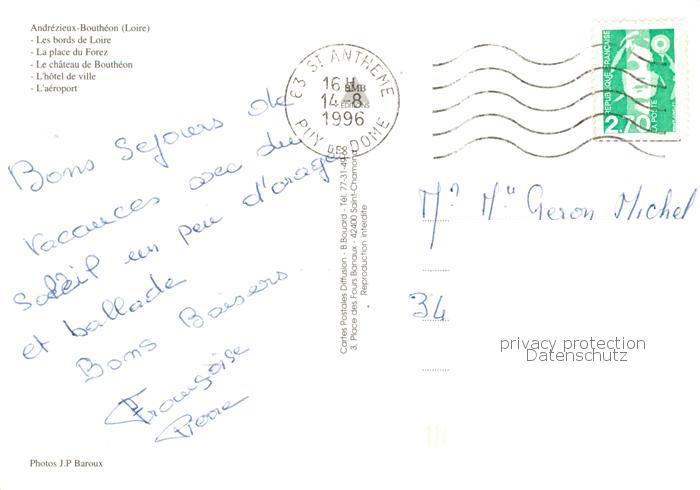 Andrézieux-Bouthéon (Loire)
- Les bords de Loire
- La place du Forez
- Le château de Bouthéon
- L'hôtel de ville
- L'aéroport
63 ST ANTHEME
16 H
14 - 8
1996
PUY DE DOME
REPUBLIQUE FRANÇAISE
2,70
LA POSTE
Bons Sejours de
vacances avec du
Soleil un peu d'orage
et ballade
Bons Baisers
Françoise
Pierre
Cartes Postales Diffusion - B.Bouard - Tél. 77-31-49-66
3, Place des Fours Banaux - 42400 Saint-Chamond
Reproduction interdite
Mr Me Geron Michel
34
privacy protection
Datenschutz
Photos J.P Baroux